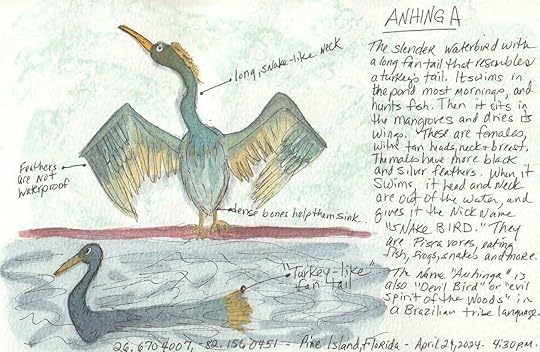 ANHINGA
The slender waterbird with
a long fan tail that resembles
a turkey's tail. It swims in
the pond most mornings, and
hunts fish. Then it sits in
the mangroves and dries its
wings. These are females,
with tan heads, neck & breast.
The males have more black
and silver feathers. When it
swims, it head and neck
are out of the water, and
gives it the Nick Name
"SNAKE BIRD." They
are Piscavores, eating
fish, frogs, snakes and more.
The Name "Anhinga" is
also "Devil Bird" or "evil
spirit of the Woods" in
a Brazilian tribe language.
long, snake-like neck
Feathers
are not
waterproof
dense bones help them sink.
"Turkey-like"
fan tail
26.6704007, -82.1560451 - Pine Island, Florida - April 29, 2024. 4:30pm.